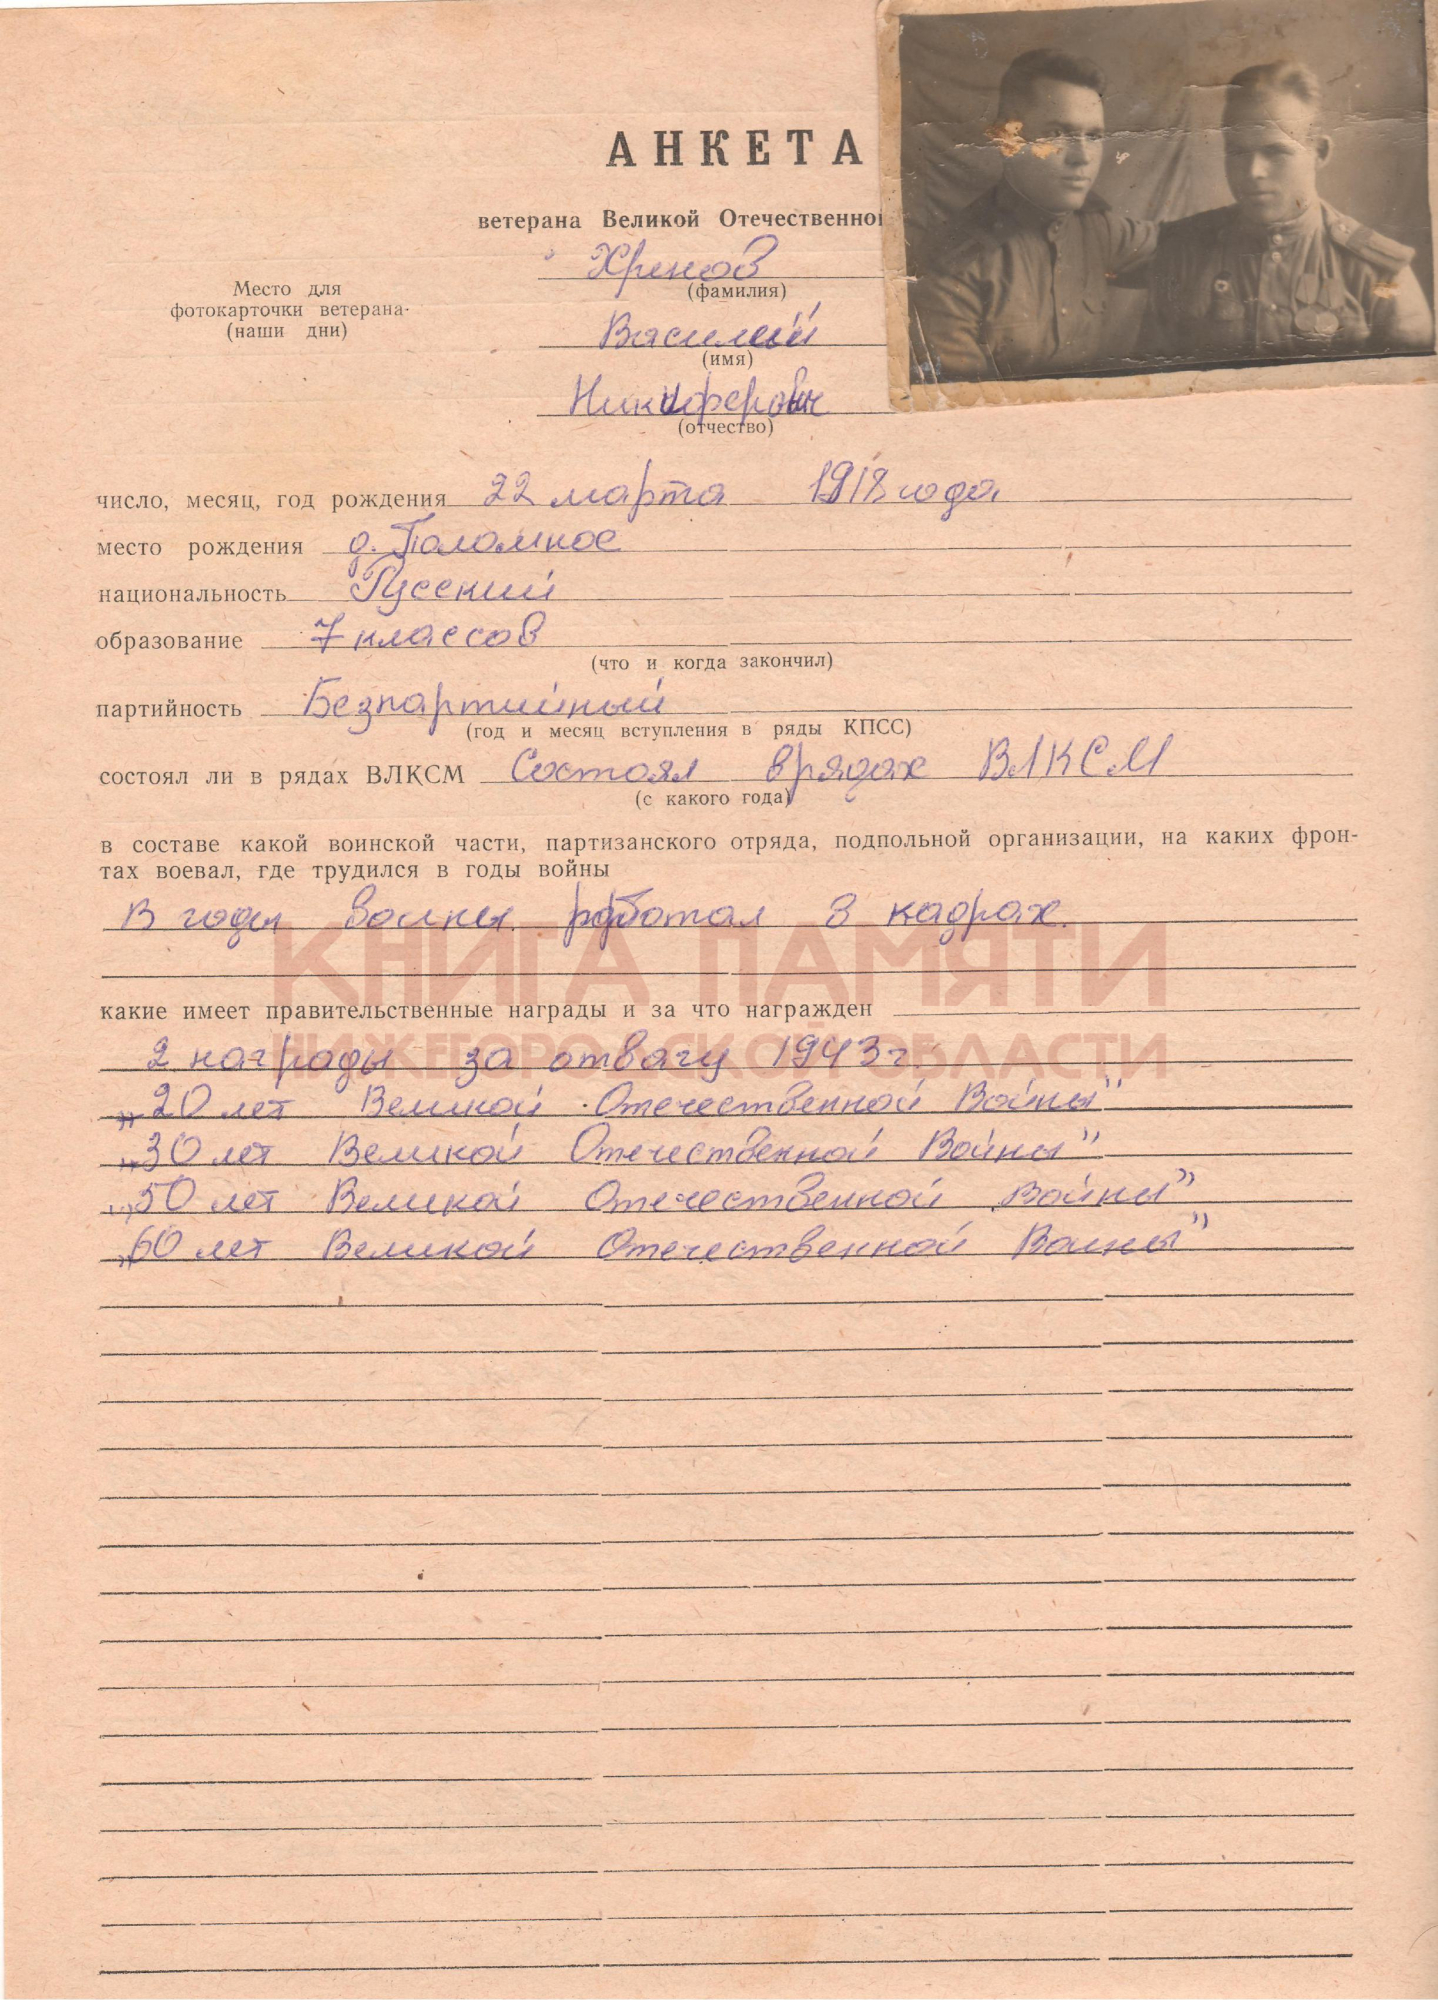 АНКЕТА
ветерана Великой Отечественно
Хренов
(фамилия)
Место для
фотокарточки ветерана
(наши дни)
Василий
(имя)
Никиферович
(отчество)
число, месяц, год рождения 22 марта 1918 года
место рождения д. Поломное
национальность Русский
образование 7 классов
(что и когда закончил)
партийность Безпартийный
(год и месяц вступления в ряды КПСС)
состоял ли в рядах ВЛКСМ Состоял в рядах ВЛКСМ
(с какого года)
в составе какой воинской части, партизанского отряда, подпольной организации, на каких фрон-
тах воевал, где трудился в годы войны
В годы войны работал в кадрах.
КНИГА ПАМЯТИ
какие имеет правительственные награды и за что награжден
НИЖЕГОРОДСКОЙ ОБЛАСТИ
2 награды за отвагу 1943 г.
„20 лет Великой Отечественной Войны"
„30 лет Великой Отечественной Войны"
„50 лет Великой Отечественной Войны"
„60 лет Великой Отечественной Войны"